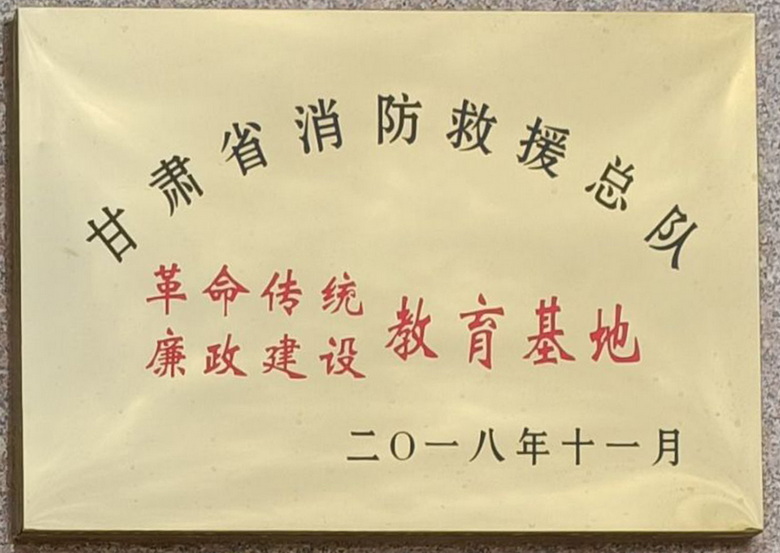 甘肃省消防救援总队
革命传统
廉政建设
教育基地
二〇一八年十一月